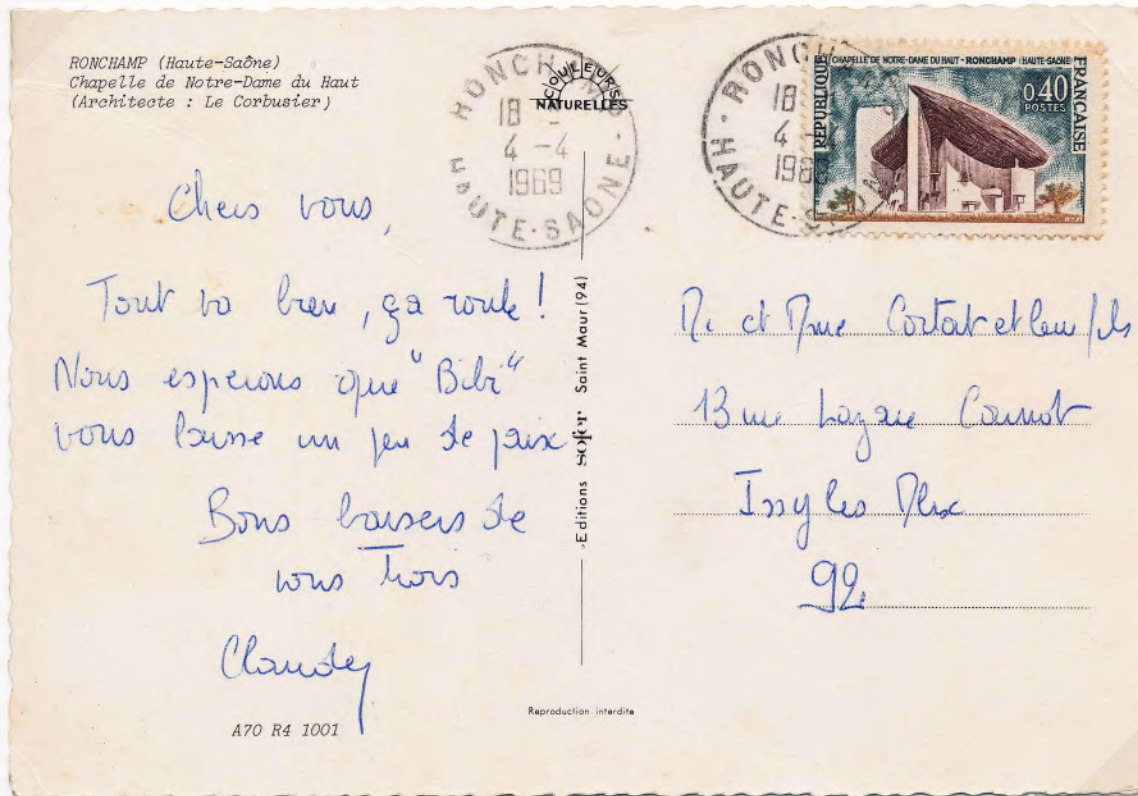 RONCHAMP (Haute-Saône)
Chapelle de Notre-Dame du Haut
(Architecte : Le Corbusier)
COULEURS
NATURELLES
RONCHAMP
18 -
4 -4
1969
HAUTE-SAONE
RONCHAMP
18
4
196
HAUTE-SAONE
CHAPELLE DE NOTRE-DAME DU HAUT - RONCHAMP (HAUTE-SAÔNE)
RÉPUBLIQUE
FRANÇAISE
0,40
POSTES
Chers vous,
Tout va bien, ça roule !
Nous esperons que "Bibi"
vous laisse un peu de paix
Bons baisers de
nous trois
Claude
Editions sofer Saint Maur (94)
Mr et Mme Cortat et leur fils
13 rue Lazare Carnot
Issy les Mlx
92
Reproduction interdite
A70 R4 1001